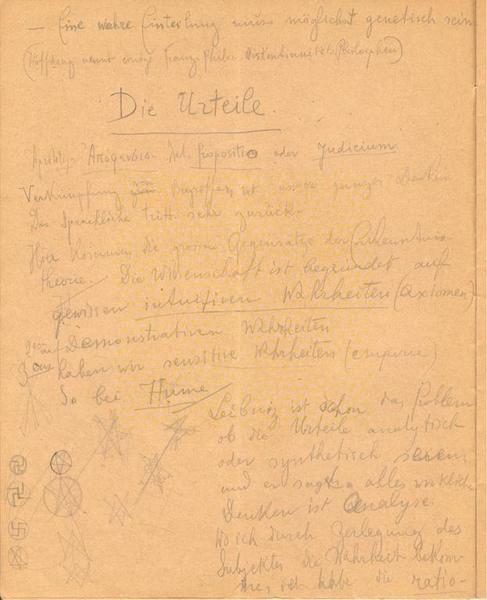 — Eine wahre Einteilung muss möglichst genetisch sein
(Höffding nennt einige Philosophen)
Die Urteile.
Ἀπόφανσις. Propositio oder Judicium
Verknüpfung von Begriffen, ist unser ganzes Denken
Das Sprachliche tritt sehr zurück.
Hier kommen die grossen Gegensätze der Erkenntnis-
theorie. Die Wissenschaft ist begründet auf
gewissen intuitiven Wahrheiten (Axiomen)
2. auf Demonstrativen Wahrheiten
3. haben wir sensitive Wahrheiten (empirie)
So bei Hume
Leibniz ist schon das Problem
ob die Urteile analytisch
oder synthetisch seien
und er sagt alles wirklich
Denken ist Analyse.
Wo ich durch Zerlegung des
Subjektes die Wahrheit bekom-
me, habe die ratio-